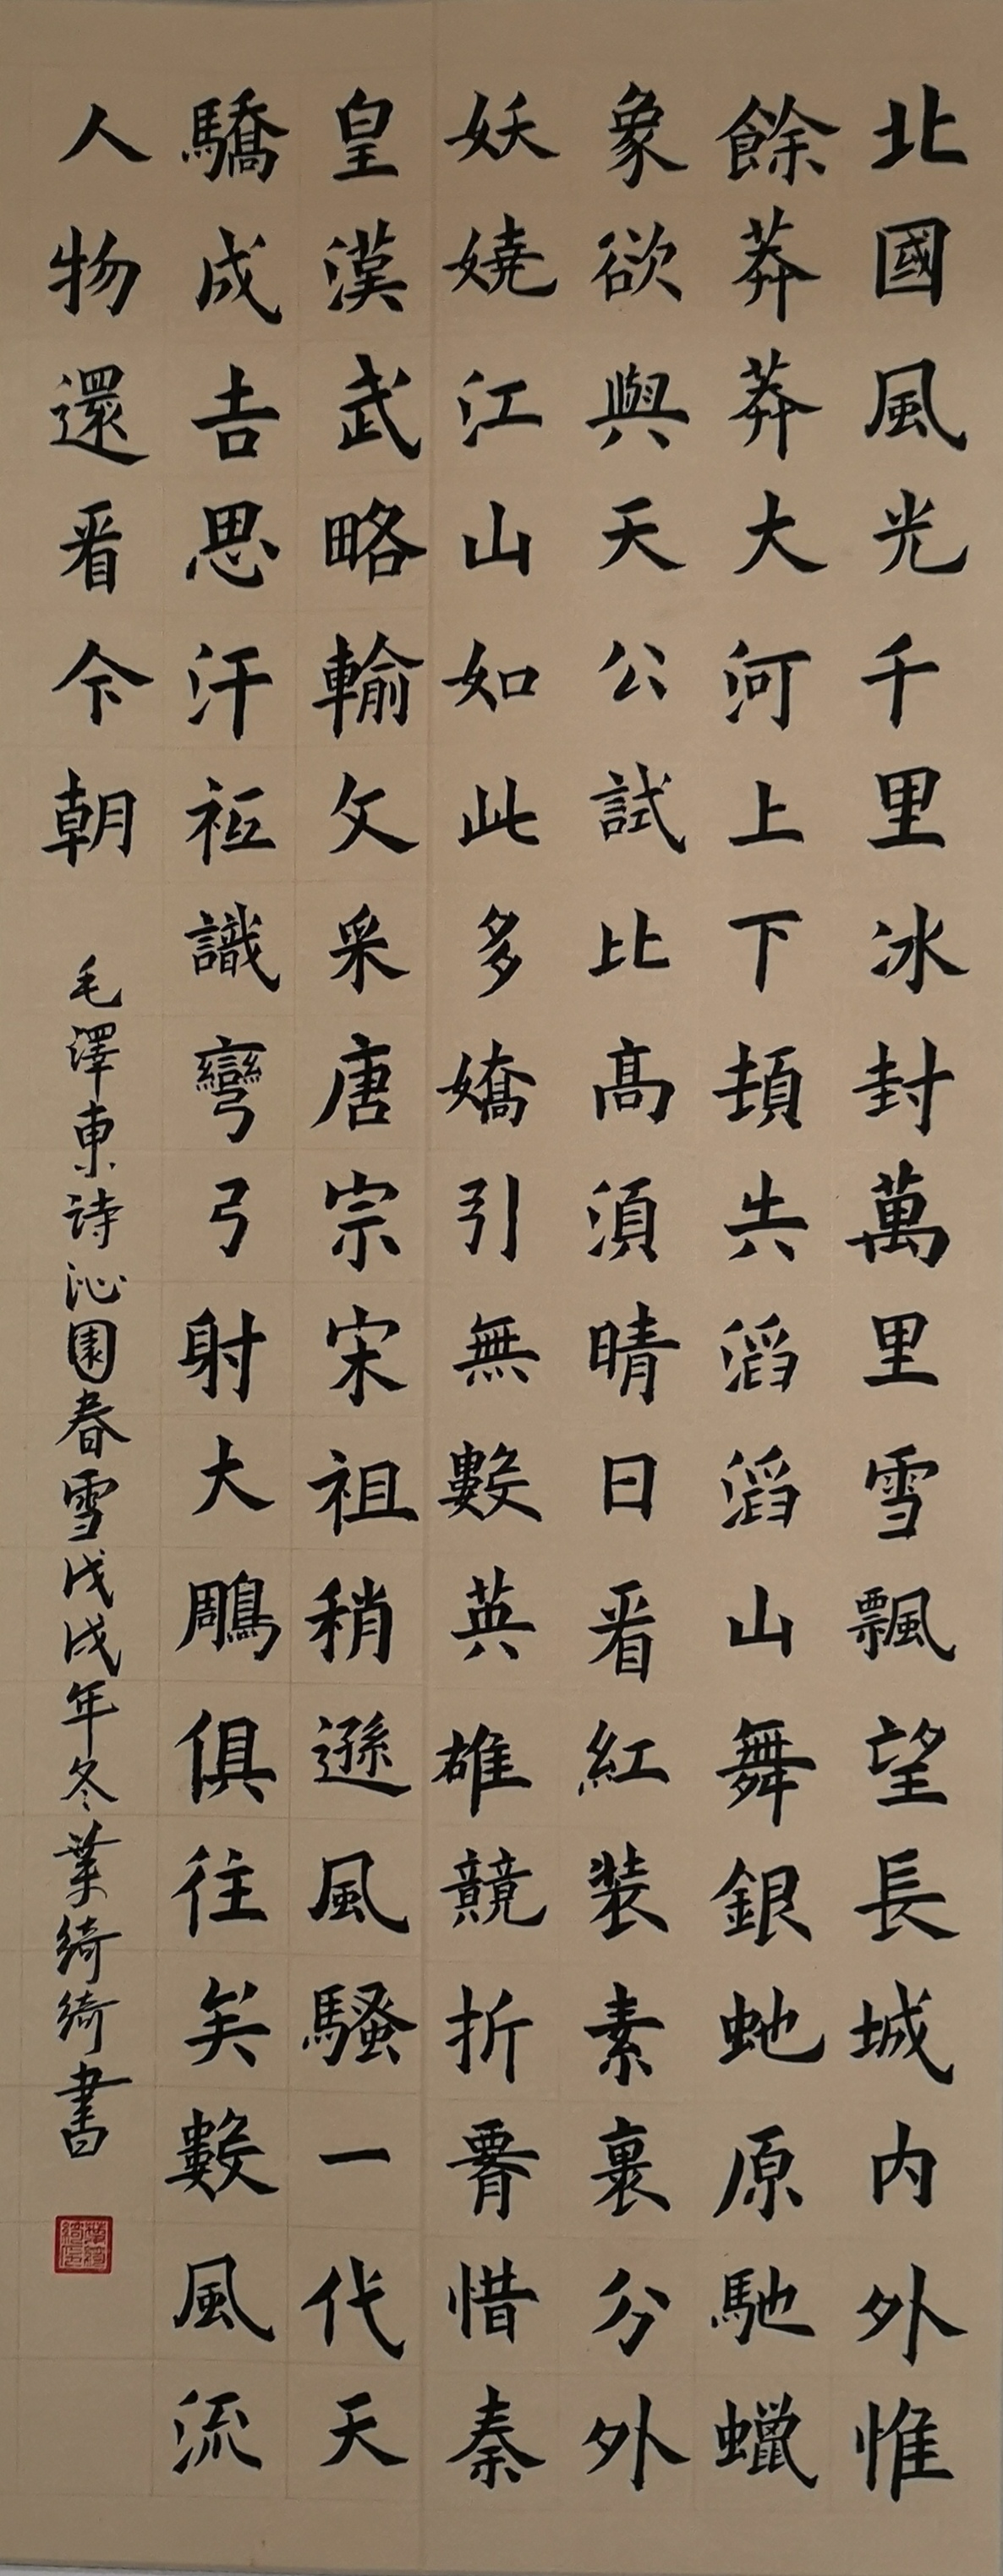 北國風光千里冰封萬里雪飄望長城内外惟
餘莽莽大河上下頓失滔滔山舞銀虵原馳蠟
象欲與天公試比髙須晴日看紅裝素裹分外
妖嬈江山如此多嬌引無數英雄競折腰惜秦
皇漢武略輸文采唐宗宋祖稍遜風騷一代天
驕成吉思汗衹識彎弓射大鵰俱往矣數風流
人物還看今朝
毛澤東詩沁園春雪戊戌年冬葉綺綺書